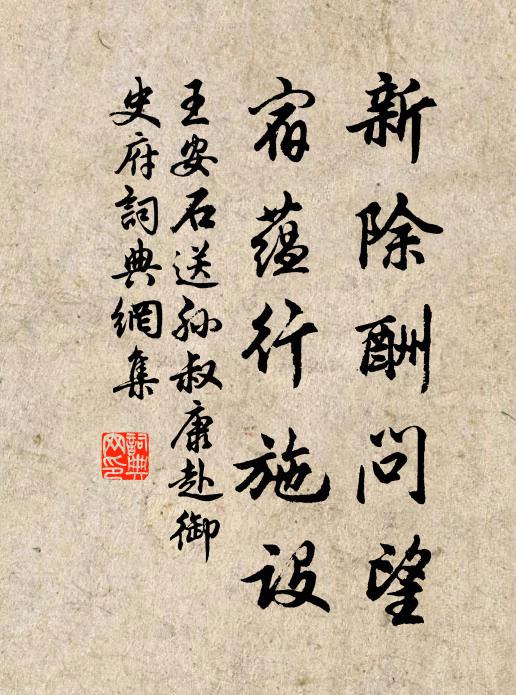 新除酬問望
宿蘊行施設
王安石送孫叔康赴御
史府詞典網集
詞典
网印